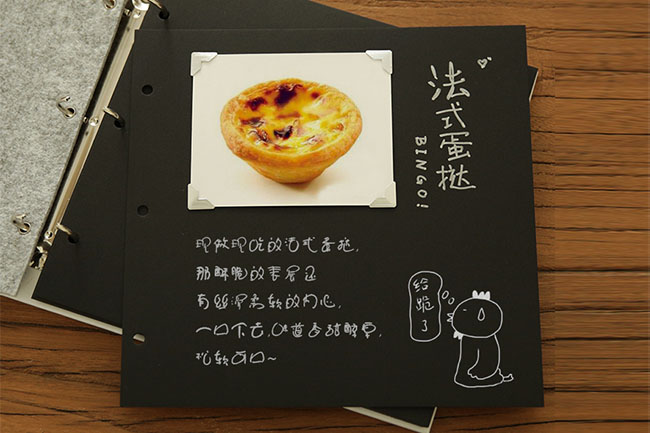 法式蛋挞
BINGO!
现做现吃的法式蛋挞,
那酥脆的表层
有丝滑柔软的内心,
一口下去,味道香甜醇厚,
松软可口~
给跪了